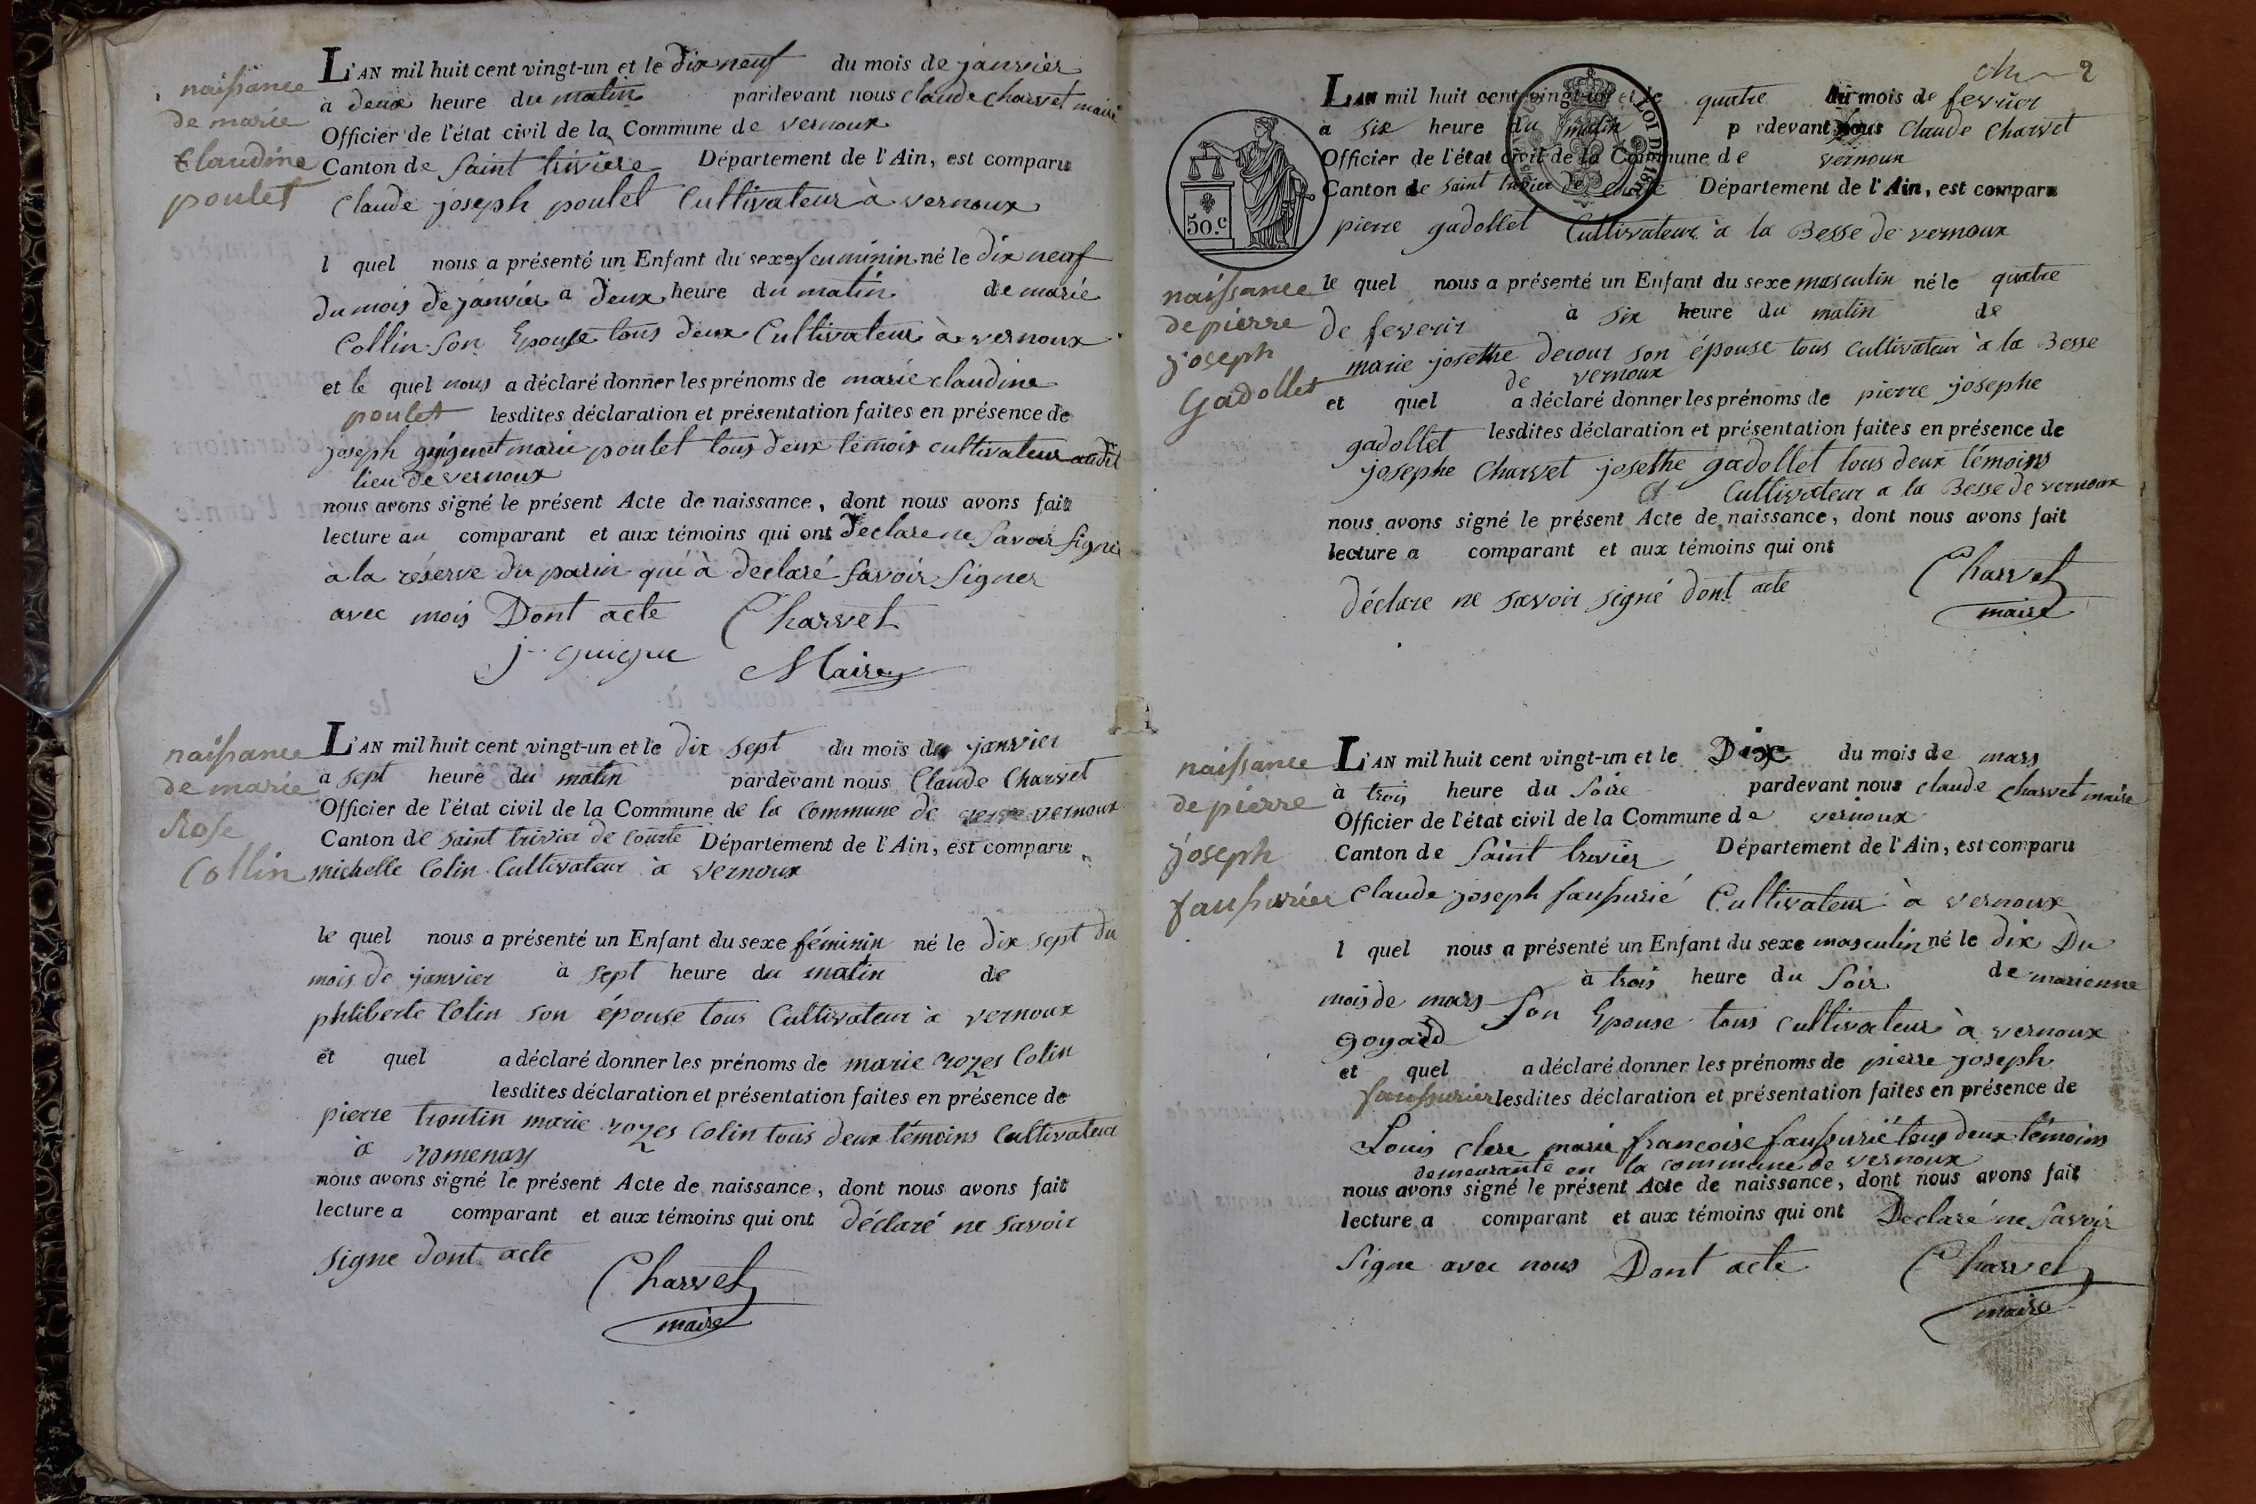 naissance
de marie
Claudine
poulet
L'AN mil huit cent vingt-un et le dix neuf du mois de janvier
à deux heure du matin pardevant nous claude charvet maire
Officier de l'état civil de la Commune de vernoux
Canton de Saint trivière Département de l'Ain, est comparu
Claude joseph poulet Cultivateur à vernoux
l quel nous a présenté un Enfant du sexe feuminin né le dix neuf
du mois de janvier à deux heure du matin de marie
Collin Son Epouse tous deux Cultivateur à vernoux
et le quel nous a déclaré donner les prénoms de marie claudine
poulet lesdites déclaration et présentation faites en présence de
joseph guigue et marie poulet tous deux témois cultivateur audit
lieu de vernoux
nous avons signé le présent Acte de naissance, dont nous avons fait
lecture au comparant et aux témoins qui ont declare ne Savoir Signer
à la réserve du parin qui à declaré Savoir Signer
avec mois Dont acte Charvet
j. guigue Maire
naissance
de marie
Rose
Collin
L'AN mil huit cent vingt-un et le dix sept du mois de janvier
à sept heure du matin pardevant nous Claude Charvet
Officier de l'état civil de la Commune de la commune de vernoux
Canton de saint trivier de courte Département de l'Ain, est comparu
michelle Colin Cultivateur à vernoux
le quel nous a présenté un Enfant du sexe féminin né le dix sept du
mois de janvier à sept heure du matin de
philiberte Colin son épouse tous Cultivateur à vernoux
et quel a déclaré donner les prénoms de marie rozes Colin
lesdites déclaration et présentation faites en présence de
pierre trontin marie rozes Colin tous deux témoins Cultivateur
à romenay
nous avons signé le présent Acte de naissance, dont nous avons fait
lecture a comparant et aux témoins qui ont déclaré ne savoir
signe dont acte
Charvet
maire
2
L'AN mil huit cent vingt-un et le quatre du mois de fevrier
à six heure du matin p rdevant nous Claude Charvet
Officier de l'état civil de la Commune de vernoux
Canton de saint trivier de courte Département de l'Ain, est comparu
pierre gadollet Cultivateur à la Besse de vernoux
50.c
LOI DE 18
naissance
de pierre
joseph
Gadollet
le quel nous a présenté un Enfant du sexe masculin né le quatre
de feverir à six heure du matin de
marie josethe decour son épouse tous Cultivateur à la Besse
de vernoux
et quel a déclaré donner les prénoms de pierre josephe
gadollet lesdites déclaration et présentation faites en présence de
josephe Charvet josethe gadollet tous deux témoins
Cultivateur a la Besse de vernoux
nous avons signé le présent Acte de naissance, dont nous avons fait
lecture a comparant et aux témoins qui ont
déclare ne savoir signé dont acte
Charvet
maire
naissance
de pierre
joseph
faussurier
L'AN mil huit cent vingt-un et le Dix du mois de mars
à trois heure du Soire pardevant nous claude charvet maire
Officier de l'état civil de la Commune de vernoux
Canton de Saint trivier Département de l'Ain, est comparu
Claude joseph faussurié Cultivateur à vernoux
l quel nous a présenté un Enfant du sexe masculin né le dix Du
mois de mars à trois heure du Soir de marienne
goyard Son Epouse tous cultivateur à vernoux
et quel a déclaré donner les prénoms de pierre joseph
faussurier lesdites déclaration et présentation faites en présence de
Louis clere marie françoise faussurié tous deux témoins
demeurante en la commune de vernoux
nous avons signé le présent Acte de naissance, dont nous avons fait
lecture a comparant et aux témoins qui ont Declaré ne Savoir
Signe avec nous Dont acte Charvet
maire